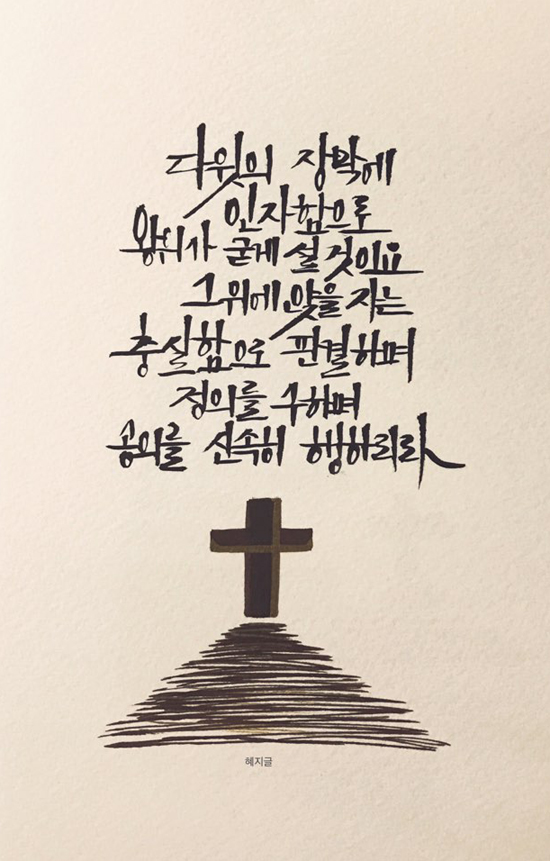 다윗의 장막에
인자함으로
왕위가 굳게 설 것이요
그 위에 앉을 자는
충실함으로 판결하며
정의를 구하며
공의를 신속히 행하리라
혜지글